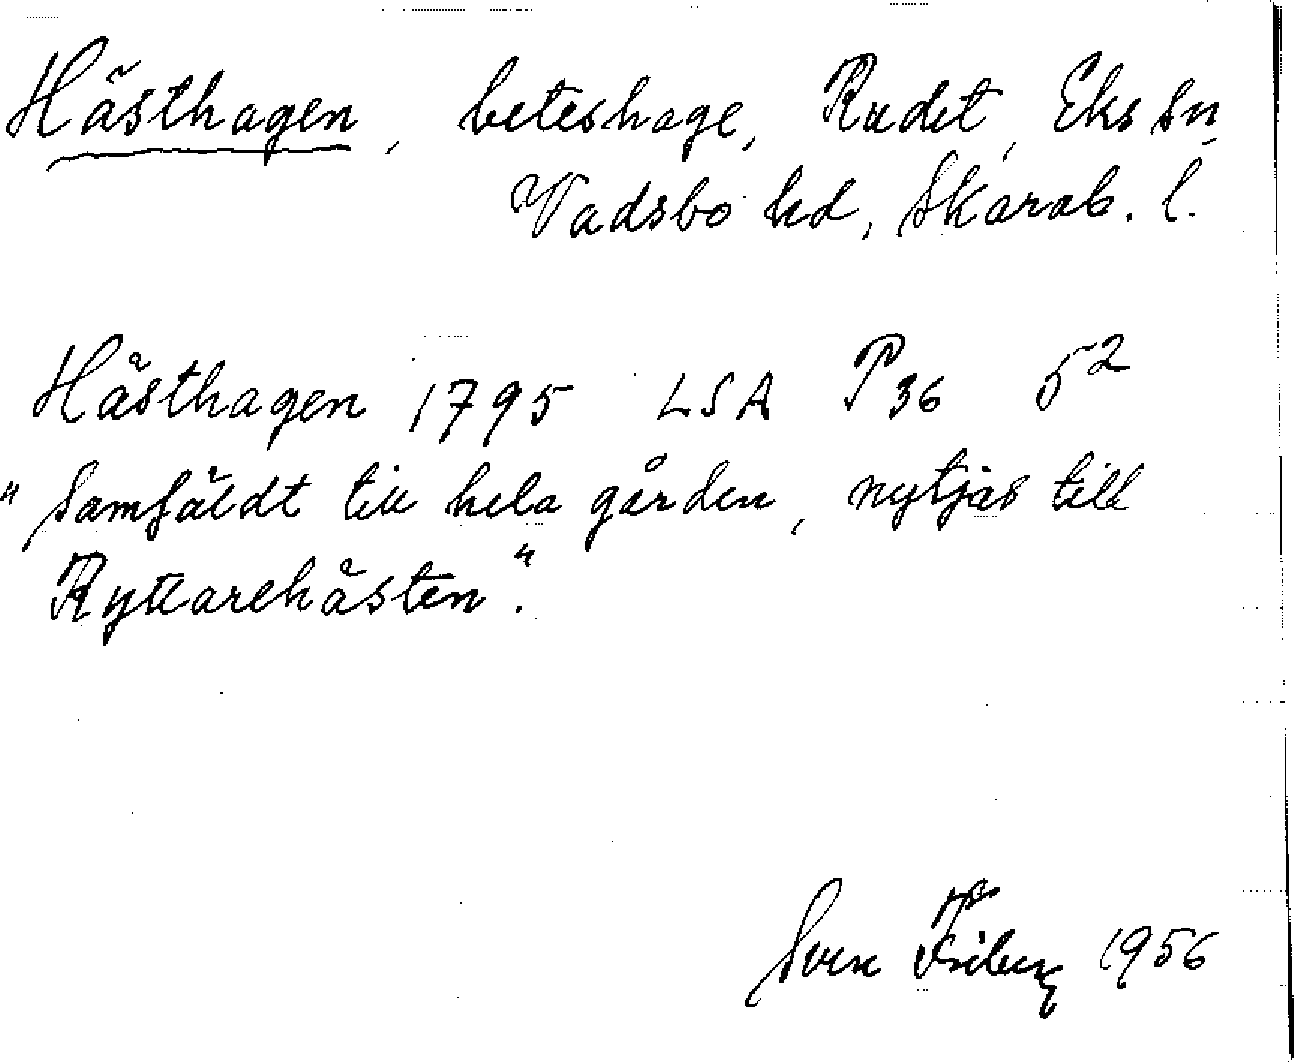 Hästhagen, beteshage, Rudet, Eks sn
Vadsbo hd, Skarab. l.
Hästhagen 1795 LSA P36 5²
"Samfäldt till hela gården, nytjas till
Ryttarehästen".
Sven Friberg 1956